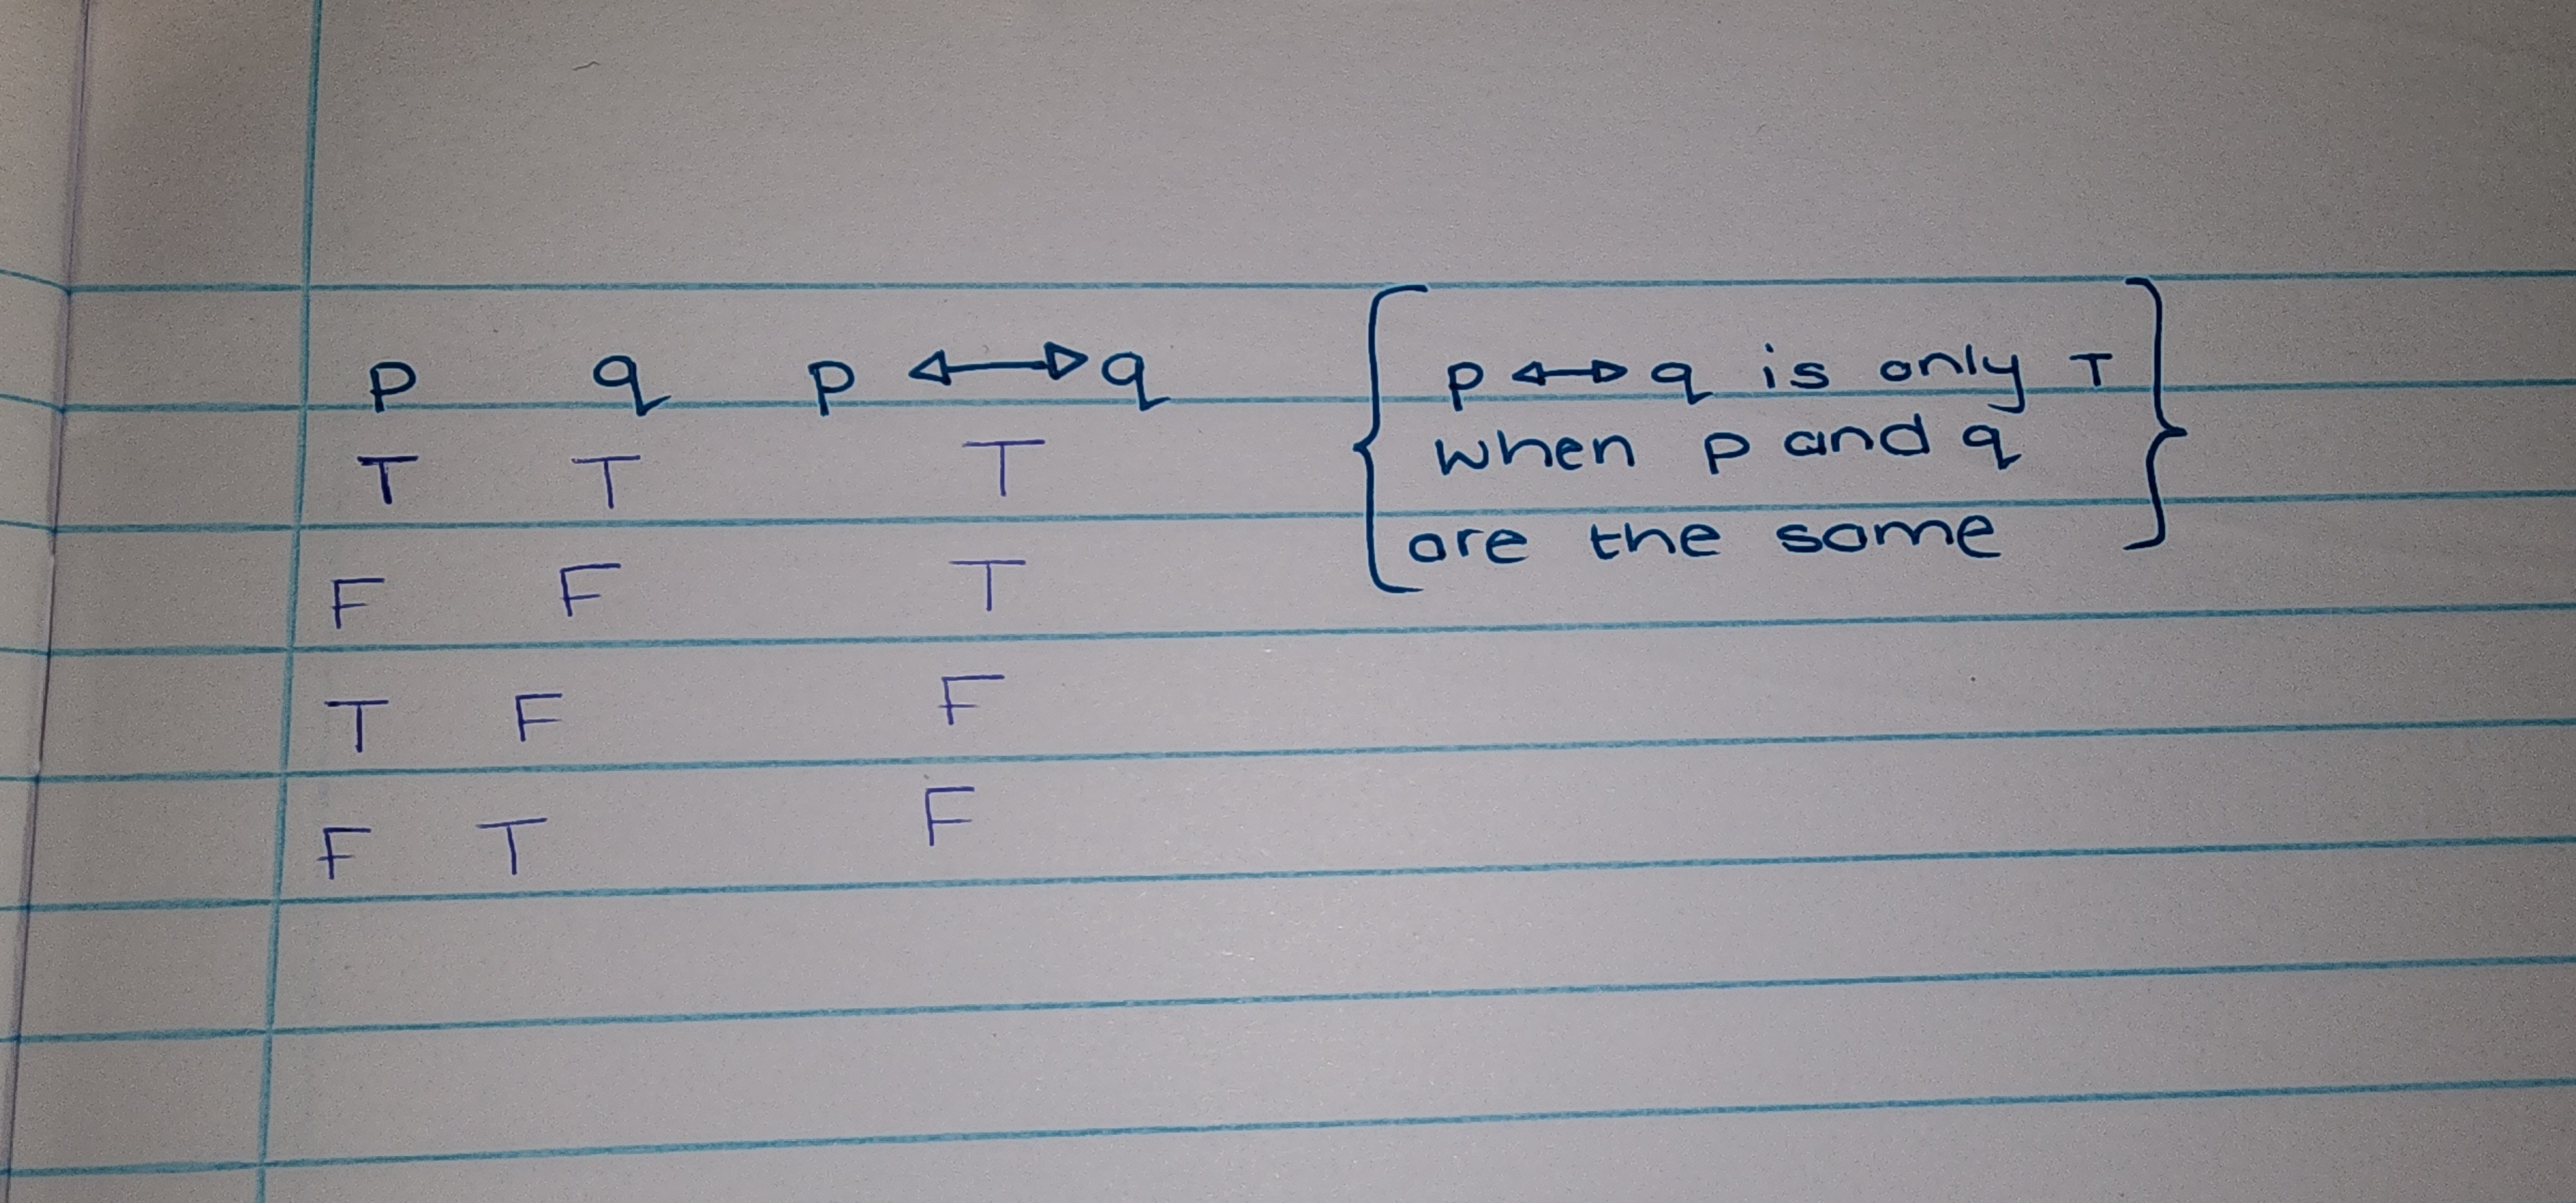 p q p ↔ q
T T T
F F T
T F F
F T F
p ↔ q is only T
when p and q
are the same